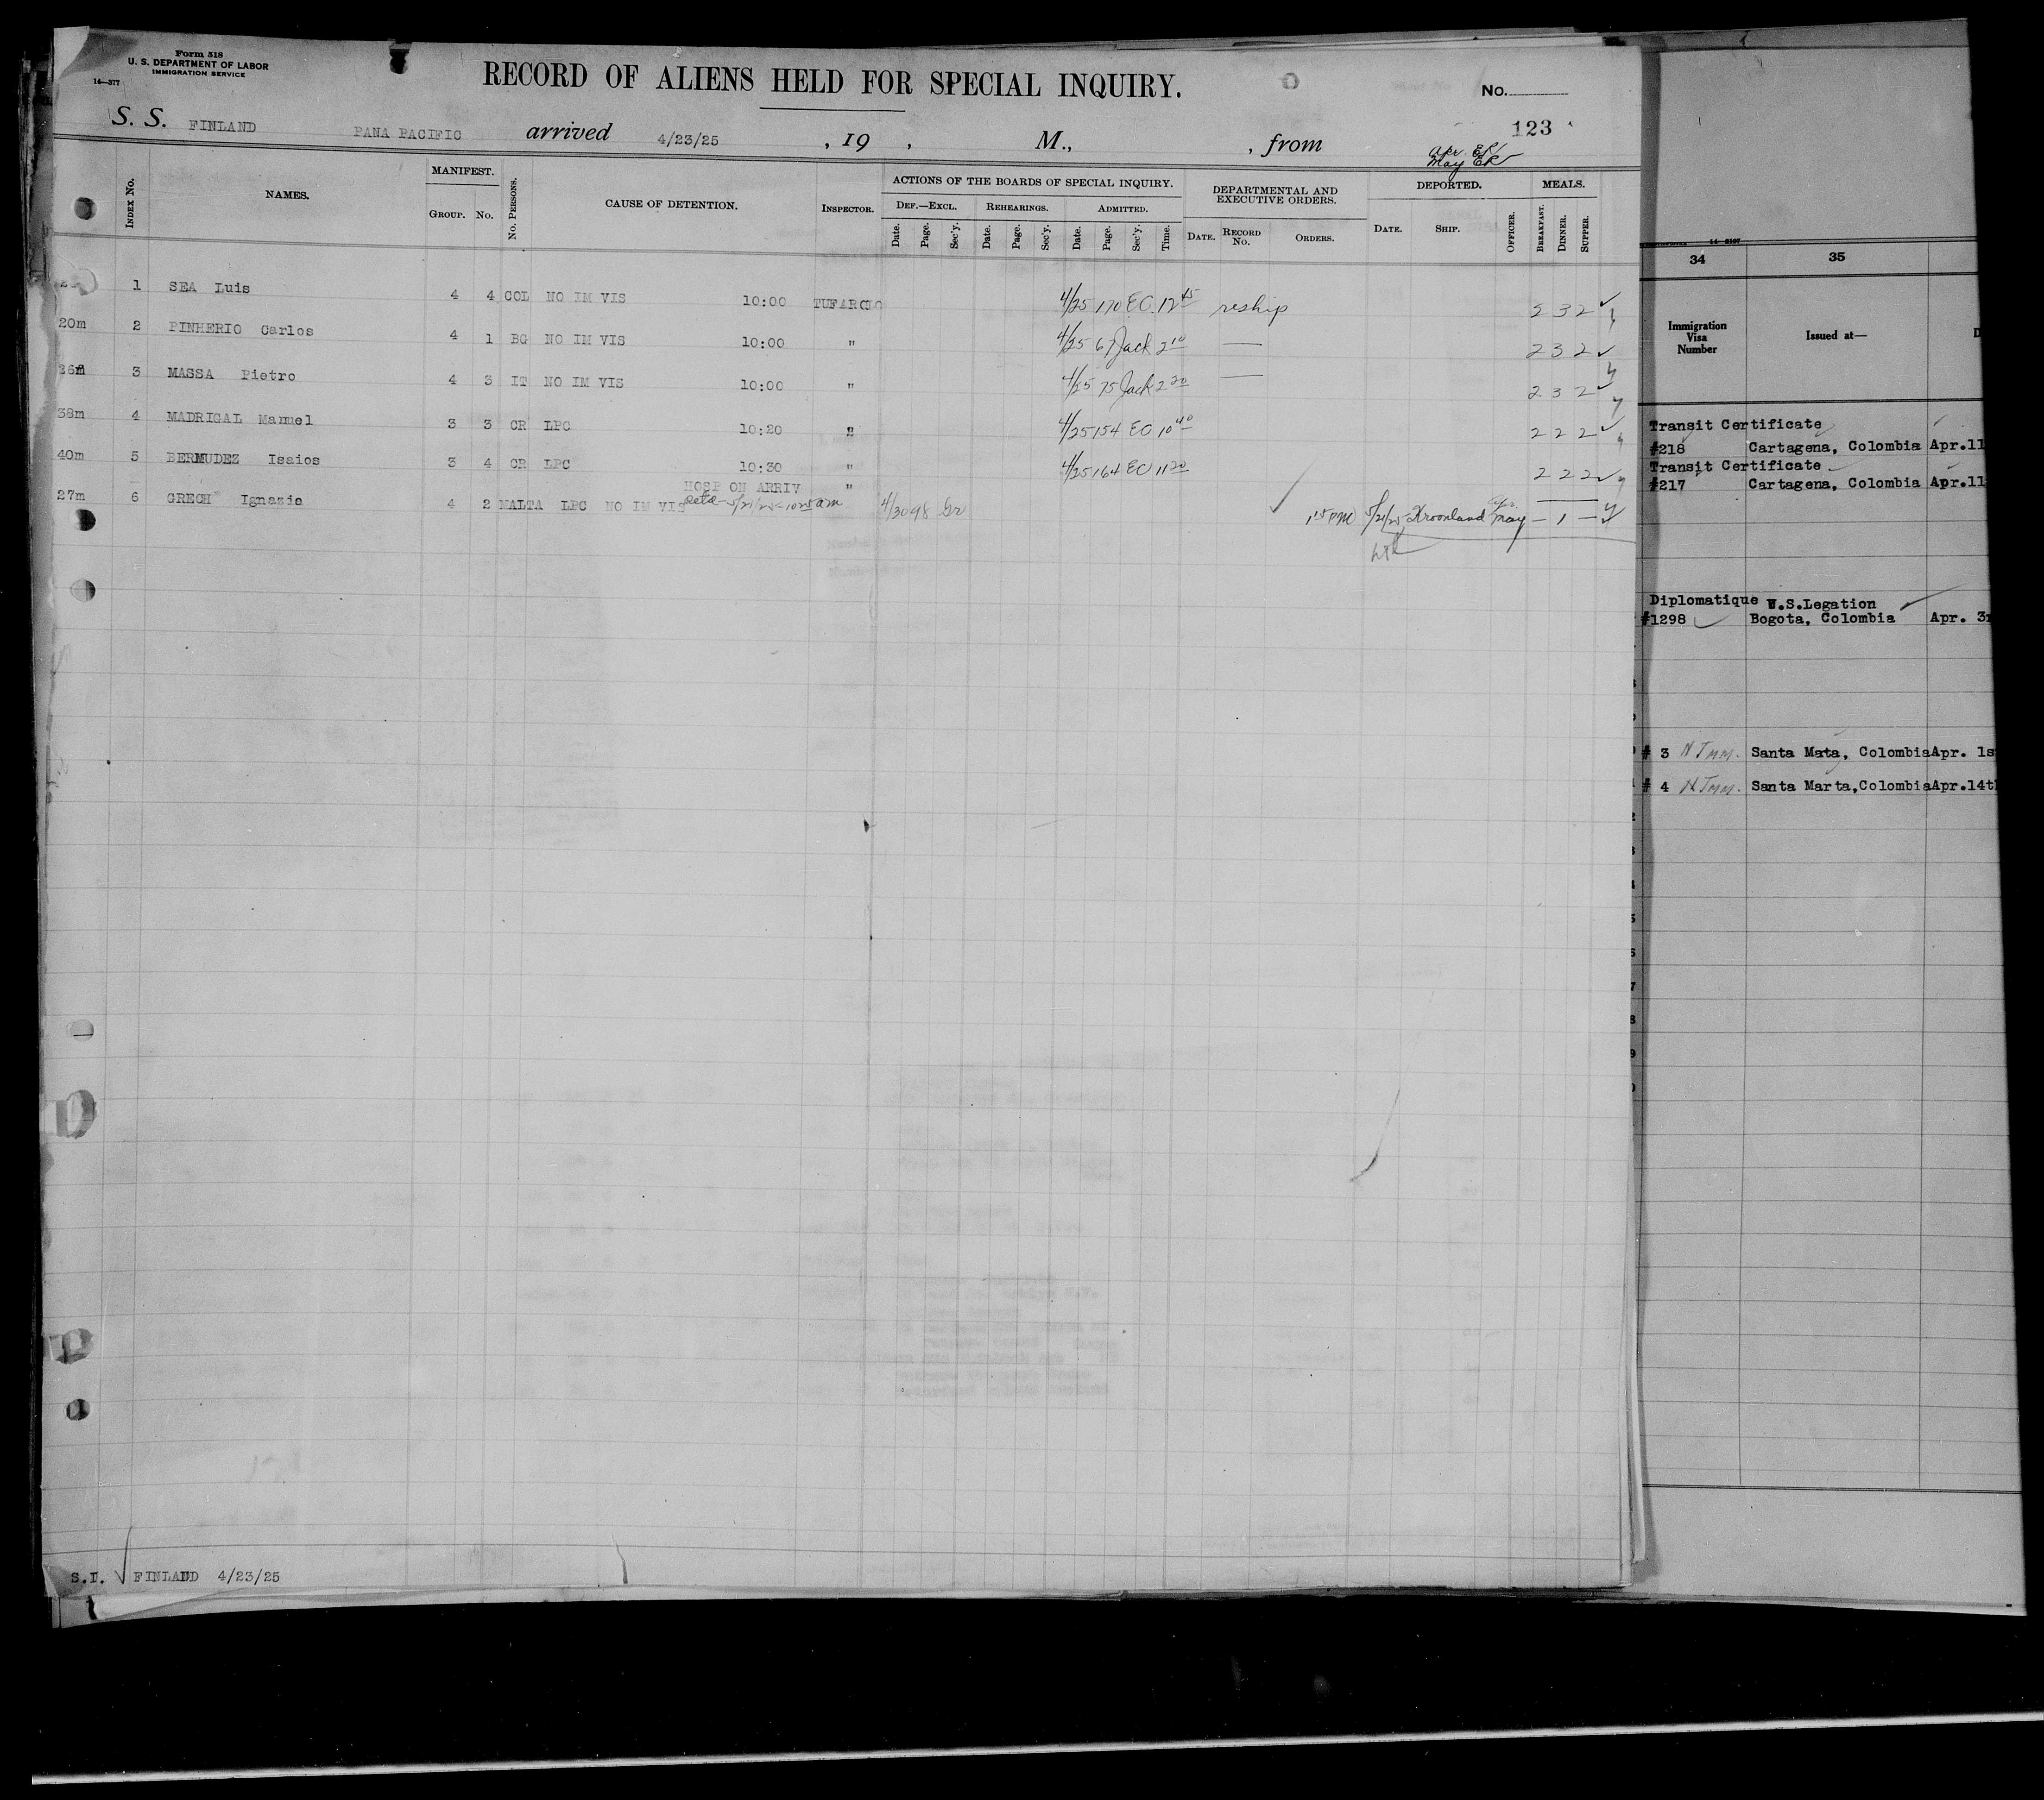 Form 518
U. S. DEPARTMENT OF LABOR
IMMIGRATION SERVICE
14—577
RECORD OF ALIENS HELD FOR SPECIAL INQUIRY.
No.
123
S. S. FINLAND PANA PACIFIC arrived 4/23/25 , 19 , M., , from
Apr. EK
May EK
INDEX No. NAMES. MANIFEST. GROUP. No. No. PERSONS. CAUSE OF DETENTION. INSPECTOR.
ACTIONS OF THE BOARDS OF SPECIAL INQUIRY.
DEF.—EXCL. REHEARINGS. ADMITTED.
Date. Page. Sec'y. Date. Page. Sec'y. Date. Page. Sec'y. Time.
DEPARTMENTAL AND EXECUTIVE ORDERS.
DATE. RECORD No. ORDERS.
DEPORTED.
DATE. SHIP. OFFICER.
MEALS.
BREAKFAST. DINNER. SUPPER.
1 SEA Luis 4 4 COL NO IM VIS 10:00 4/25 170 EC 12 45 reship 3 2
20m 2 PINHERIO Carlos 4 1 BG NO IM VIS 10:00 " 4/25 67 Jack 2 10 — 2 3 2
3 MASSA Pietro 4 3 IT NO IM VIS 10:00 " 4/25 75 Jack 2 20 — 2 3 2
38m 4 MADRIGAL Manuel 3 3 CR LPC 10:20 " 4/25 154 EC 10 40 2 2 2
40m 5 BERMUDEZ Isaios 3 4 CR LPC 10:30 " 4/25 164 EC 11 20 2 2 2
HOSP ON ARRIV "
27m 6 GRECH Ignazio 4 2 MALTA LPC NO IM VIS 5/21/25 - 10 25 am 4/30 98 Gr 1 15 PM 5/21/25 Kroonland May — 1 —
S.I. FINLAND 4/23/25
34 35
Immigration Visa Number
Issued at—
Transit Certificate
#218 Cartagena, Colombia Apr.11
Transit Certificate
#217 Cartagena, Colombia Apr.11
Diplomatique U.S.Legation
#1298 Bogota, Colombia Apr. 3
# 3 N Imm. Santa Mata, Colombia Apr. 1s
# 4 N Imm. Santa Marta,Colombia Apr.14t